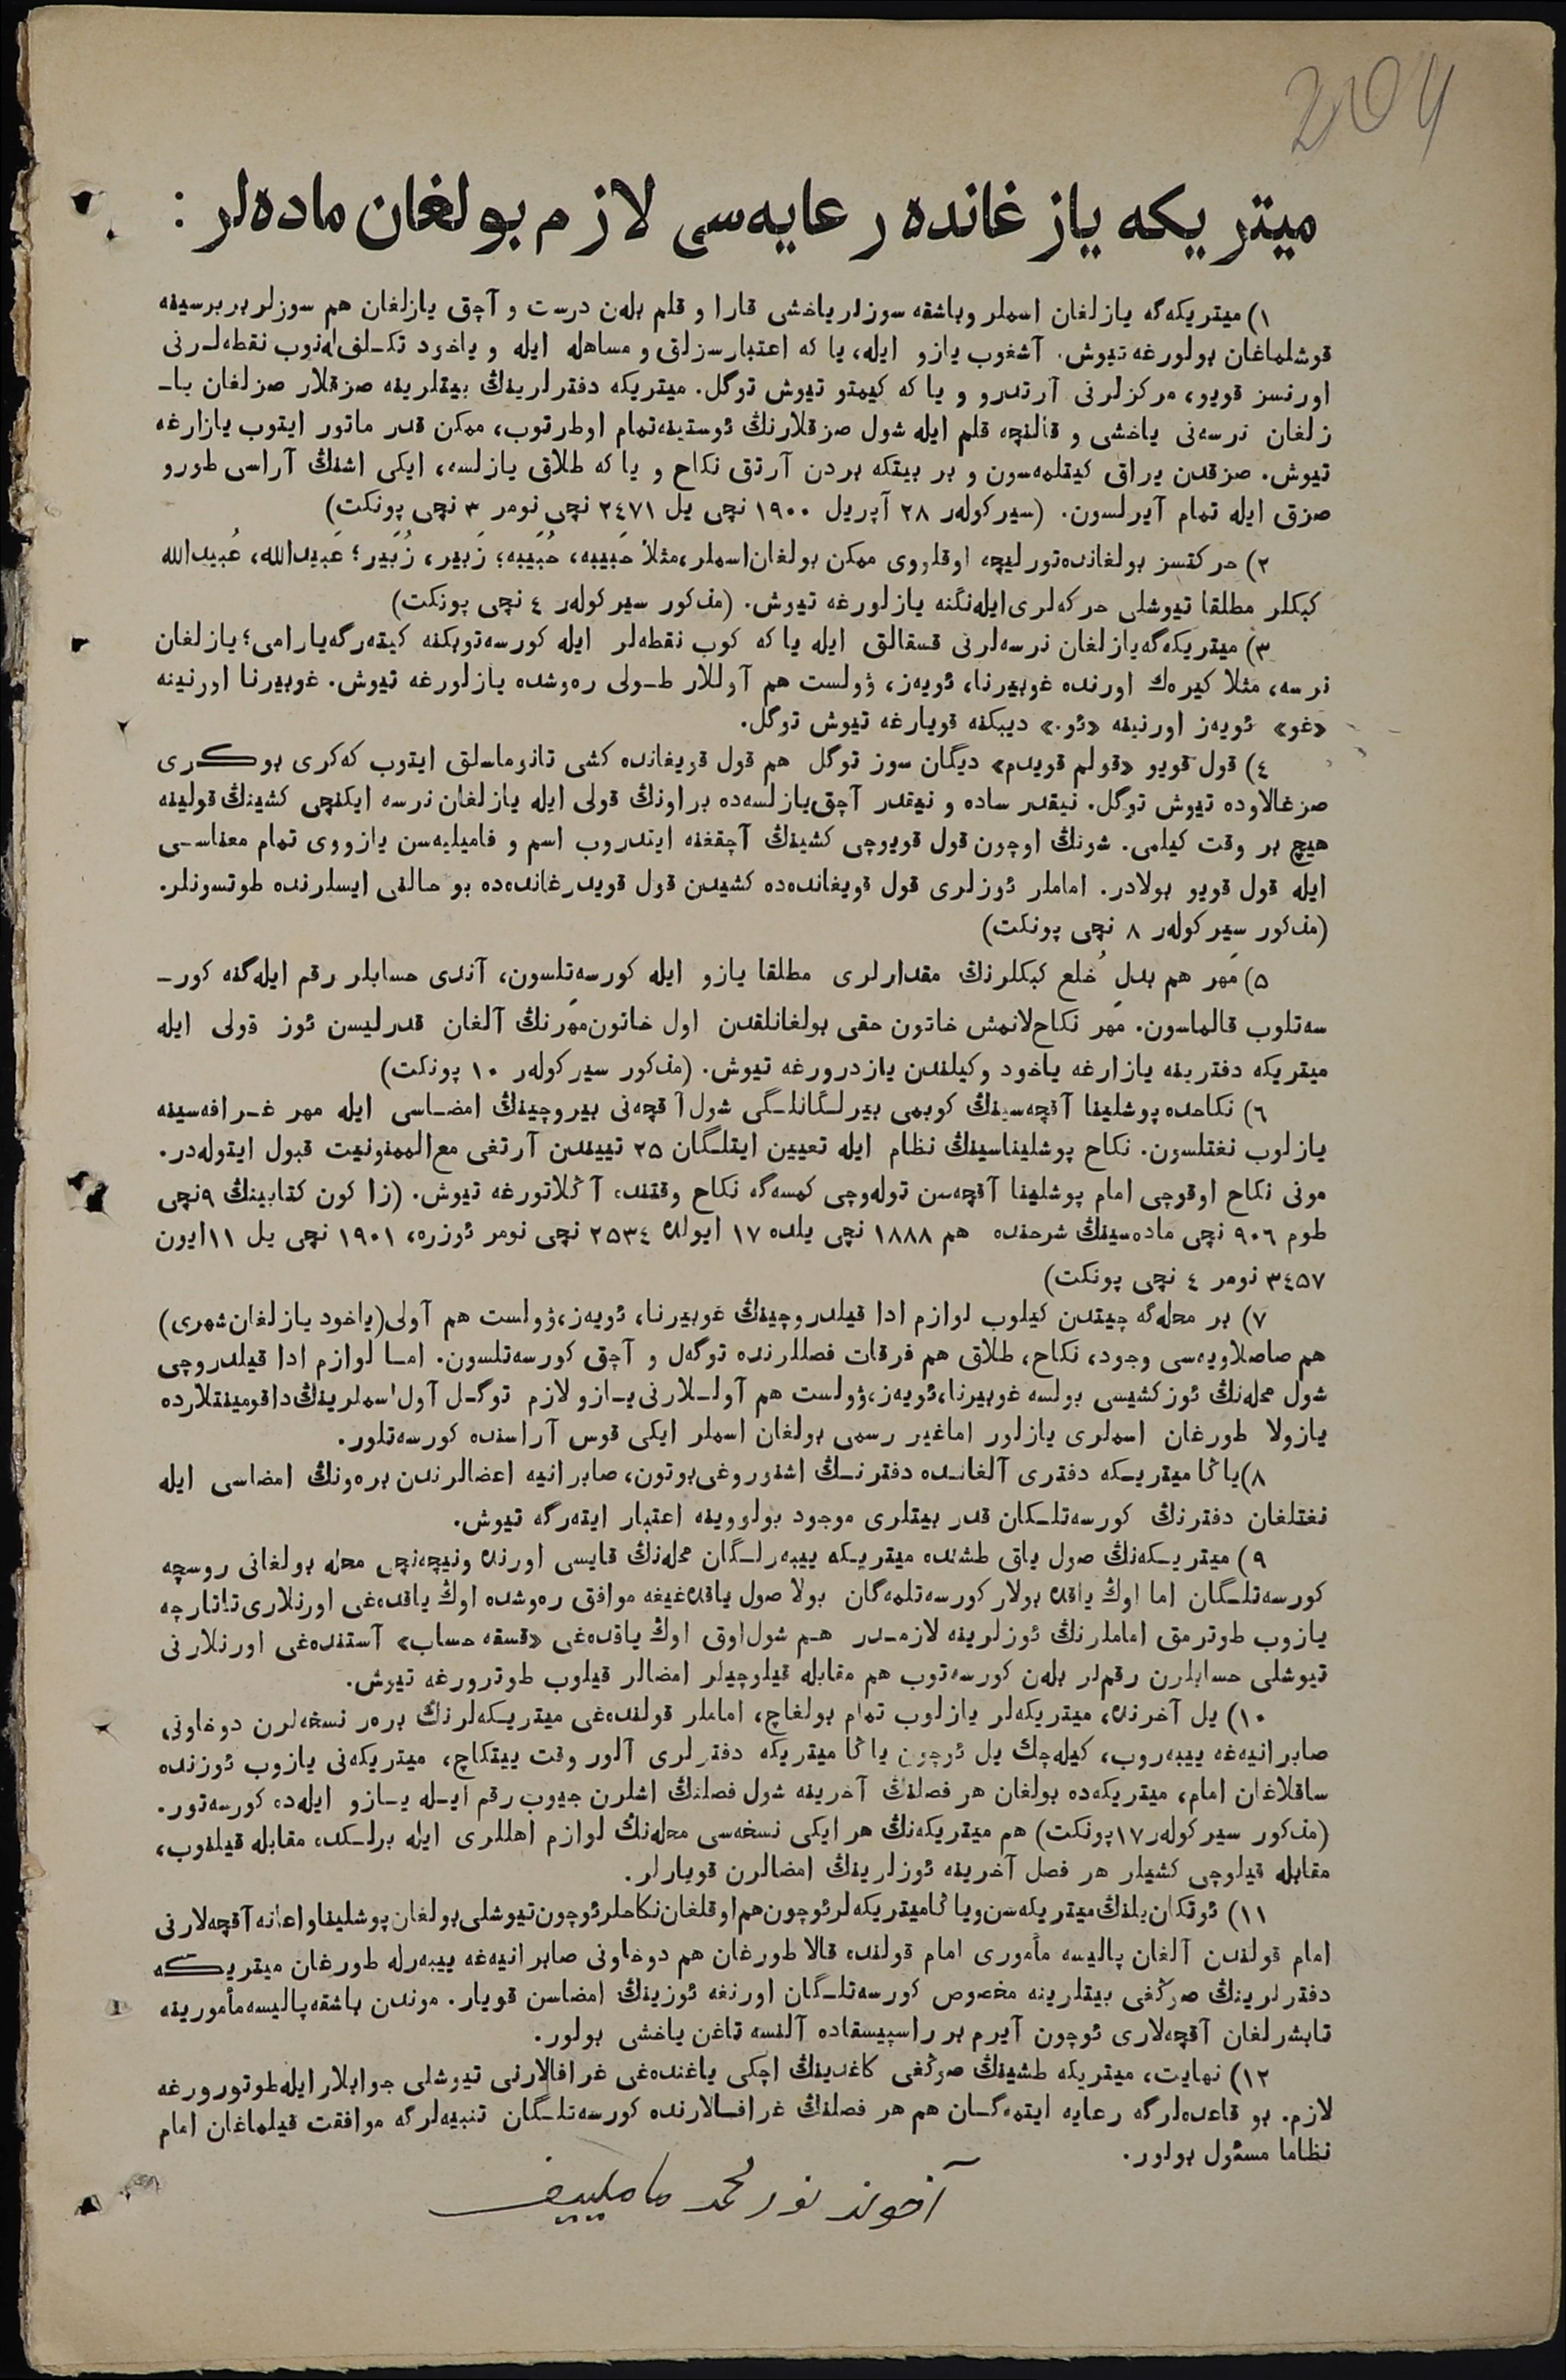 204
میتریكه یازغانده رعایه‌سی لازم بولغان ماده‌لر :
١) میتریكه‌گه یازلغان اسملر وباشقه سوزلر یاخشی قارا و قلم بله‌ن درست و آچق یازلغان هم سوزلر بربرسینه
قوشلماغان بولورغه تیوش. آشغوب یازو ایله، یا كه اعتبارسزلق و مساهله ایله و یاخود تكـلف‌له‌نوب نقطه‌لـرنی
اورنسز قویو، مركزلرنی آرتدرو و یا كه كیمتو تیوش توگل. میتریكه دفترلرینڭ بیتلرینه صزقلار صزلغان یاـ
زلغان نرسه‌نی یاخشی و قالنچه قلم ایله شول صزقلارنڭ ئوستینه‌تمام اوطرتوب، ممكن قدر ماتور ایتوب یازارغه
تیوش. صزقدن یراق كیتلمه‌سون و بر بیتكه بردن آرتق نكاح و یا كه طلاق یازلسه، ایكی اشنڭ آراسی طورو
صزق ایله تمام آیرلسون. (سیركوله‌ر ٢٨ آپریل ١٩٠٠ نچی یل ٢٤٧١ نچی نومر ٣ نچی پونكت)
٢) حركتسز بولغانده‌تورلیچه اوقلووی ممكن بولغان‌اسملر،مثلاً حَبیبه، حُبَیبه؛ زَبیر، زُبَیر؛ عَبیدالله، عُبیدالله
كبكلر مطلقا تیوشلی حركه‌لری‌ایله‌نگنه یازلورغه تیوش. (مذكور سیركوله‌ر ٤ نچی پونكت)
٣) میتریكه‌گه‌یازلغان نرسه‌لرنی قسقالق ایله یا كه كوب نقطه‌لر ایله كورسه‌توبكنه كیته‌رگه‌یارامی؛ یازلغان
نرسه، مثلا كیره‌ك اورنده غوبیرنا، ئویه‌ز، وٚولست هم آوللار طـولی ره‌وشده یازلورغه تیوش. غوبیرنا اورنینه
«غو» ئویه‌ز اورنینه «ئو.» دیبكنه قویارغه تیوش توگل.
٤) قول قویو «قولم قویدم» دیگان سوز توگل هم قول قویغانده كشی تانوماسلق ایتوب كه‌كری بوكـری
صزغالاوده تیوش توگل. نیقدر ساده و نیقدر آچق‌یازلسه‌ده براونڭ قولی ایله یازلغان نرسه ایكنچی كشینڭ قولینه
هیچ بر وقت كیلمی. شونڭ اوچون قول قویوچی كشینڭ آچقغنه ایتدروب اسم و فامیلیه‌سن یازووی تمام معناسـی
ایله قول قویو بولادر. اماملر ئوزلری قول قویغانده‌ده كشیدن قول قویدرغانده‌ده بو حالنی ایسلرنده طوتسونلر.
(مذكور سیركوله‌ر ٨ نچی پونكت)
۵) مَهر هم بدلِ خُلع كبكلرنڭ مقدارلری مطلقا یازو ایله كورسه‌تلسون، آندی حسابلر رقم ایله‌گنه كورـ
سه‌تلوب قالماسون. مَهر نكاح‌لانمش خاتون حقی بولغانلقدن اول خاتون‌مَهرنڭ آلغان قدرلیسن ئوز قولی ایله
میتریكه دفترینه یازارغه یاخود وكیلندن یازدرورغه تیوش. (مذكور سیركوله‌ر ١٠ پونكت)
٦) نكاحده پوشلینا آقچه‌سینڭ كوبمی بیرلـگانلـگی شول آقچه‌نی بیروچینڭ امضـاسی ایله مهر غـرافه‌سینه
یازلوب نغتلسون. نكاح پوشلیناسینڭ نظام ایله تعیین ایتلـگان ٢۵ تییندن آرتغی مع‌الممنونیت قبول ایتوله‌در.
مونی نكاح اوقوچی امام پوشلینا آقچه‌سن توله‌وچی كمسه‌گه نكاح وقتنده آڭلاتورغه تیوش. (زاكون كتابینڭ ٩نچی
طوم ٩٠٦ نچی ماده‌سینڭ شرحنده هم ١٨٨٨ نچی یلده ١٧ ایولده ٢۵٣٤ نچی نومر ئوزره، ١٩٠١ نچی یل ١١ایون
٣٤۵٧ نومر ٤ نچی پونكت)
٧) بر محله‌گه چیتدن كیلوب لوازم ادا قیلدروچینڭ غوبیرنا، ئویه‌ز،وٚولست هم آولی(یاخود یازلغان شهری)
هم صاصلاویه‌سی وجود، نكاح، طلاق هم فرقات فصللرنده توگه‌ل و آچق كورسه‌تلسون. امـا لوازم ادا قیلدروچی
شول محله‌نڭ ئوزكشیسی بولسه غوبیرنا،ئویه‌ز،وٚولست هم آولـلارنی یـازو لازم توگـل آول اسملرینڭ‌داقومینتلارده
یازولا طورغان اسملری یازلور اماغیر رسمی بولغان اسملر ایكی قوس آراسنده كورسه‌تلور.
٨)یاڭا میتریـكه دفتری آلغانـده دفترنـڭ اشنوروغی‌بوتون، صابرانیه اعضالرندن بره‌ونڭ امضاسی ایله
نغتلغان دفترنڭ كورسه‌تلـكان قدر بیتلری موجود بولووینه اعتبار ایته‌رگه تیوش.
٩) میتریـكه‌نڭ صول یاق طشنده میتریـكه ییبه‌رلـگان محله‌نڭ قایسی اورنده ونیچه‌نچی محله بولغانی روسچه
كورسه‌تلـگان اما اوڭ یاقده بولار كورسه‌تلمه‌گان بولا صول یاقده‌غیغه موافق ره‌وشده اوڭ یاقده‌غی اورنلاری‌تاتارچه
یازوب طوترمق اماملرنڭ ئوزلرینه لازمـدر هـم شول‌اوق اوڭ یاقده‌غی «قسقه حساب» آستنده‌غی اورنلارنی
تیوشلی حسابلرن رقم‌لر بله‌ن كورسه‌توب هم مقابله قیلوچیلر امضالر قیلوب طوترورغه تیوش.
١٠) یل آخرنده، میتریكه‌لر یازلوب تمام بولغاچ، اماملر قولنده‌غی میتریـكه‌لرنڭ بره‌ر نسخه‌لرن دوخاونی
صابرانیه‌غه ییبه‌روب، كیله‌چك یل ئوچون یاڭا میتریكه دفترلری آلور وقت ییتكاچ، میتریكه‌نی یازوب ئوزنده
ساقلاغان امام، میتریكه‌ده بولغان هر فصلنڭ آخرینه شول فصلنڭ اشلرن جیوب رقم ایـله یـازو ایله‌ده كورسه‌تور.
(مذكور سیركوله‌ر١٧پونكت) هم میتریكه‌نڭ هر ایكی نسخه‌سی محله‌نڭ لوازم اهللری ایله برلـكده مقابله قیلنوب،
مقابله قیلوچی كشیلر هر فصل آخرینه ئوزلرینڭ امضالرن قویارلر.
١١) ئوتكان‌یلنڭ‌میتریكه‌سن‌ویاڭامیتریكه‌لرئوچون‌هم‌اوقلغان‌نكاحلرئوچون‌تیوشلی‌بولغان‌پوشلیناواعانه‌آقچه‌لارنی
امام قولندن آلغان پالیسه مأموری امام قولنده قالا طورغان هم دوخاونی صابرانیه‌غه ییبه‌رله طورغان میتریـكه
دفترلرینڭ صوڭغی بیتلرینه مخصوص كورسه‌تلـگان اورنغه ئوزینڭ امضاسن قویار. موندن باشقه‌پالیسه‌مأمورینه
تابشرلغان آقچه‌لاری ئوچون آیرم بر راسپیسقاده آلنسه تاغن یاخشی بولور.
١٢) نهایت، میتریكه طشینڭ صوڭغی كاغدینڭ اچكی یاغنده‌غی غرافالارنی تیوشلی جوابلار ایله‌طوتورورغه
لازم. بو قاعده‌لرگه رعایه ایتمه‌گـان هم هر فصلنڭ غرافـالارنده كورسه‌تلـگان تنبیه‌لرگه موافقت قیلماغان امام
نظاما مسئول بولور.
آخوند نورمحمد ماملییف